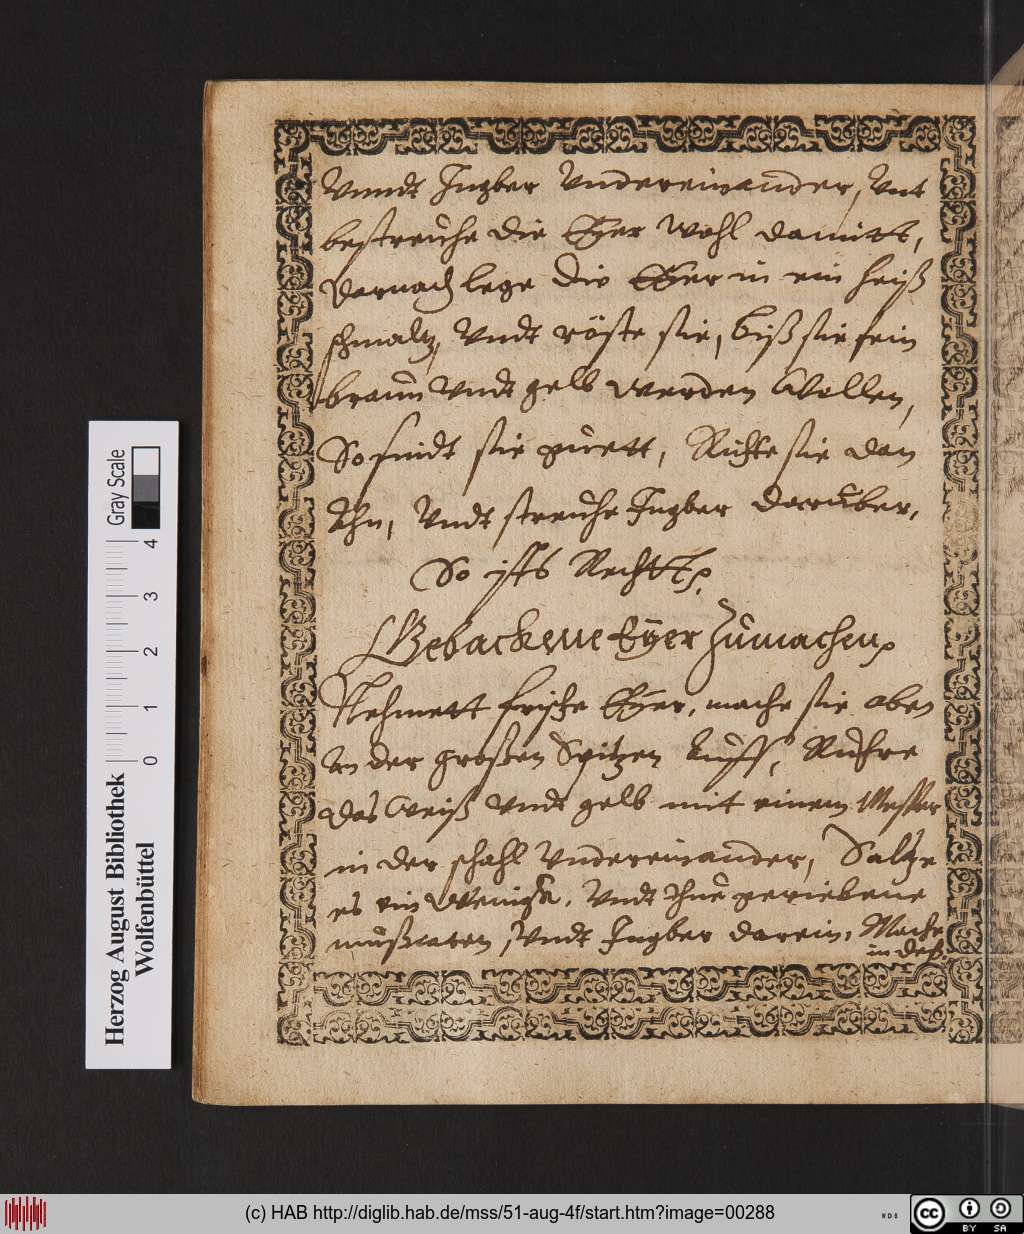 Vnndt Ingber Vndereinander, Vnt
bestreuche die Eÿer wohl damitt,
Darnach lege die Eÿer in ein heiß
schmaltz, Vndt röste sie, biß sie fein
braun Vndt gelb werden Wollen,
So sindt sie guett, Richte sie dan
Ahn, Vndt streuche Ingber darüber,
So ists Recht
Gebackene Eÿer Zumachen
Nehmett frische Eÿer, mache sie oben
An der großen Spitzen Auff, Rühre
das Weiß Vndt gelb mit einem Messer
in der schahl Vndereinander, Saltze
es ein Wenigk, Vndt Thue geriebene
mußcaten, Vndt Ingber darein, Mache
in deß
Gray Scale
4
3
2
1
0
Herzog August Bibliothek
Wolfenbüttel
(c) HAB http://diglib.hab.de/mss/51-aug-4f/start.htm?image=00288
WDB
cc
BY SA